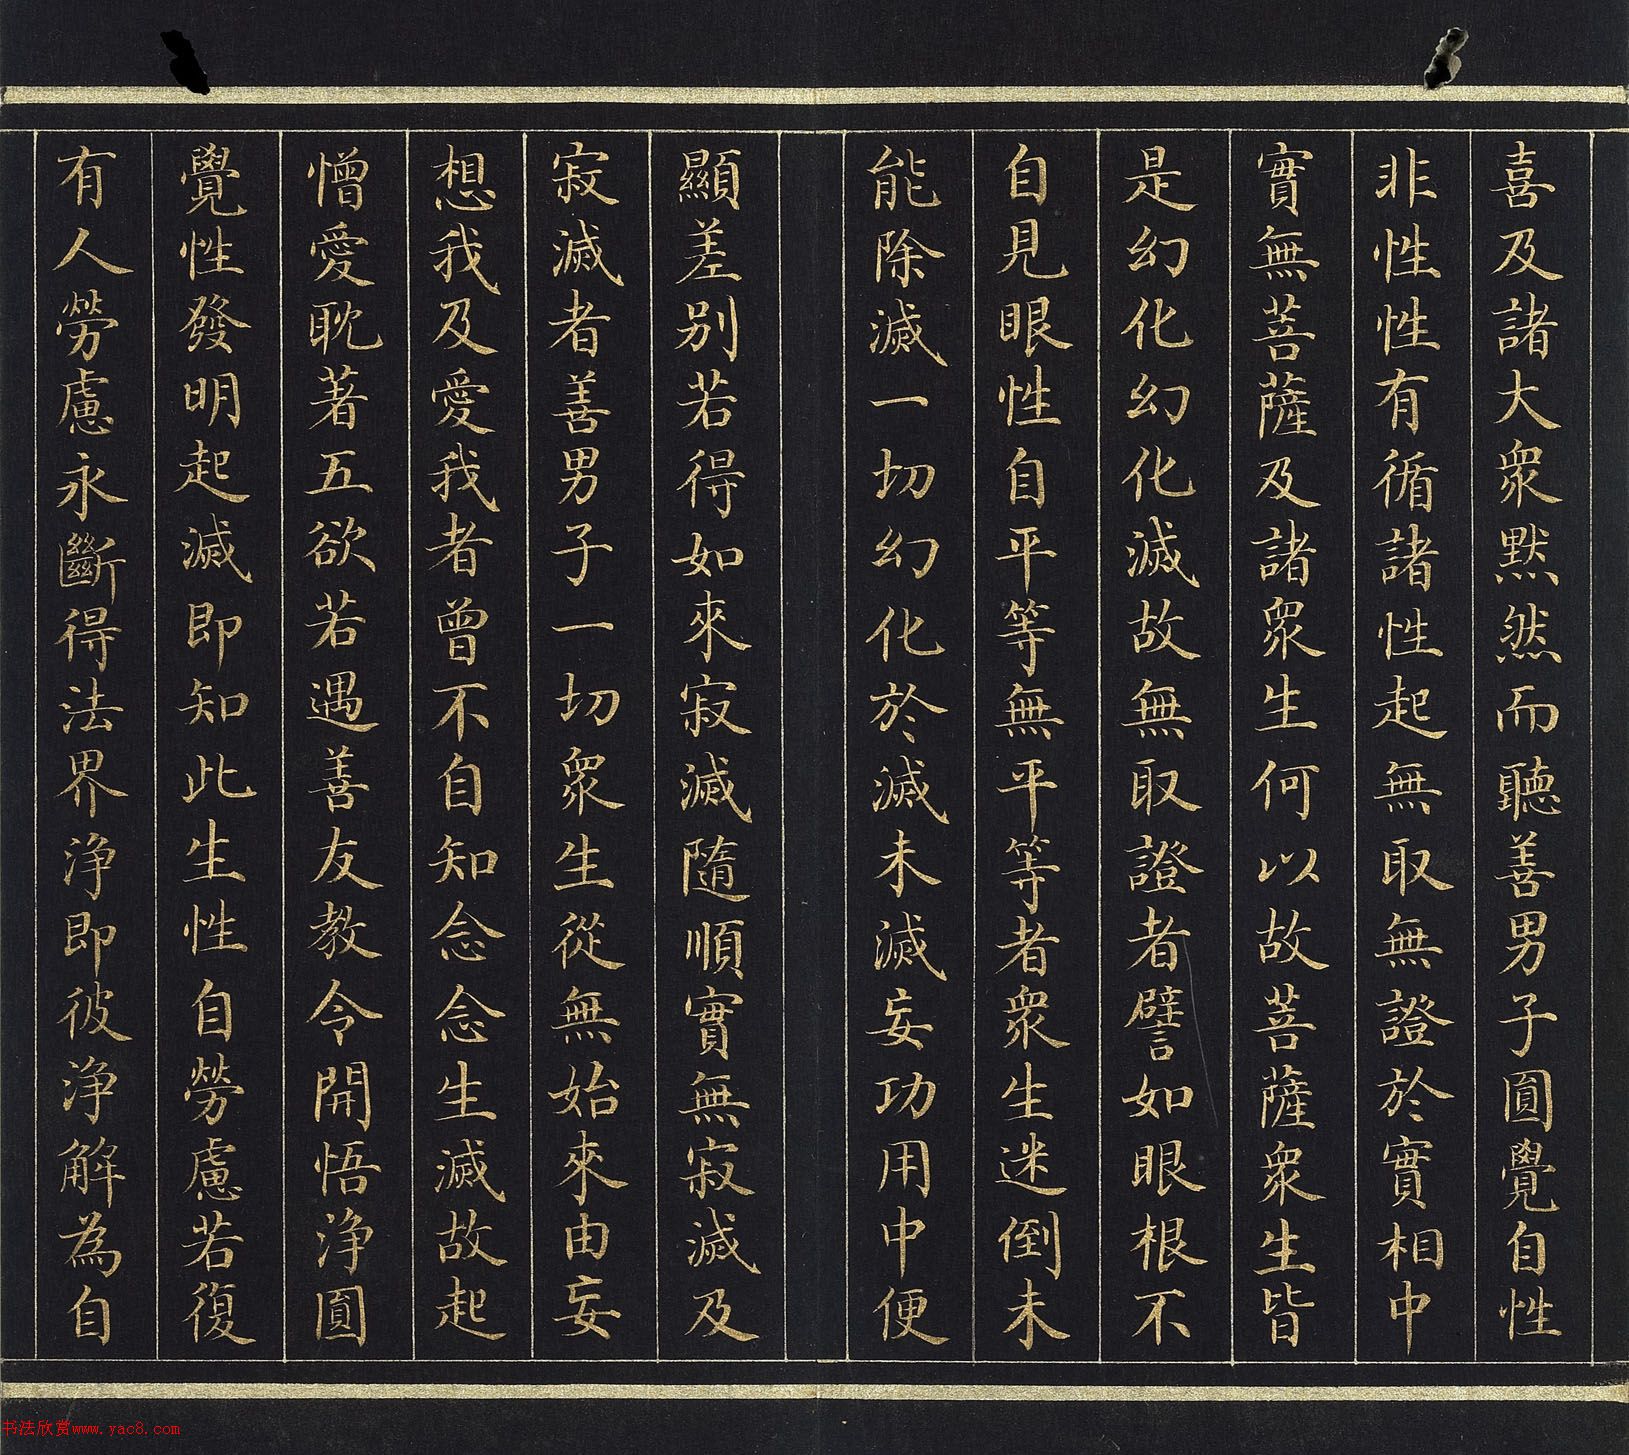 喜及諸大衆默然而聽善男子圓覺自性
非性性有循諸性起無取無證於實相中
實無菩薩及諸衆生何以故菩薩衆生皆
是幻化幻化滅故無取證者譬如眼根不
自見眼性自平等無平等者衆生迷倒未
能除滅一切幻化於滅未滅妄功用中便
顯差别若得如來寂滅隨順實無寂滅及
寂滅者善男子一切衆生從無始來由妄
想我及愛我者曾不自知念念生滅故起
憎愛耽著五欲若遇善友教令開悟浄圓
覺性發明起滅即知此生性自勞慮若復
有人勞慮永斷得法界浄即彼浄解為自
书法欣赏www.yac8.com